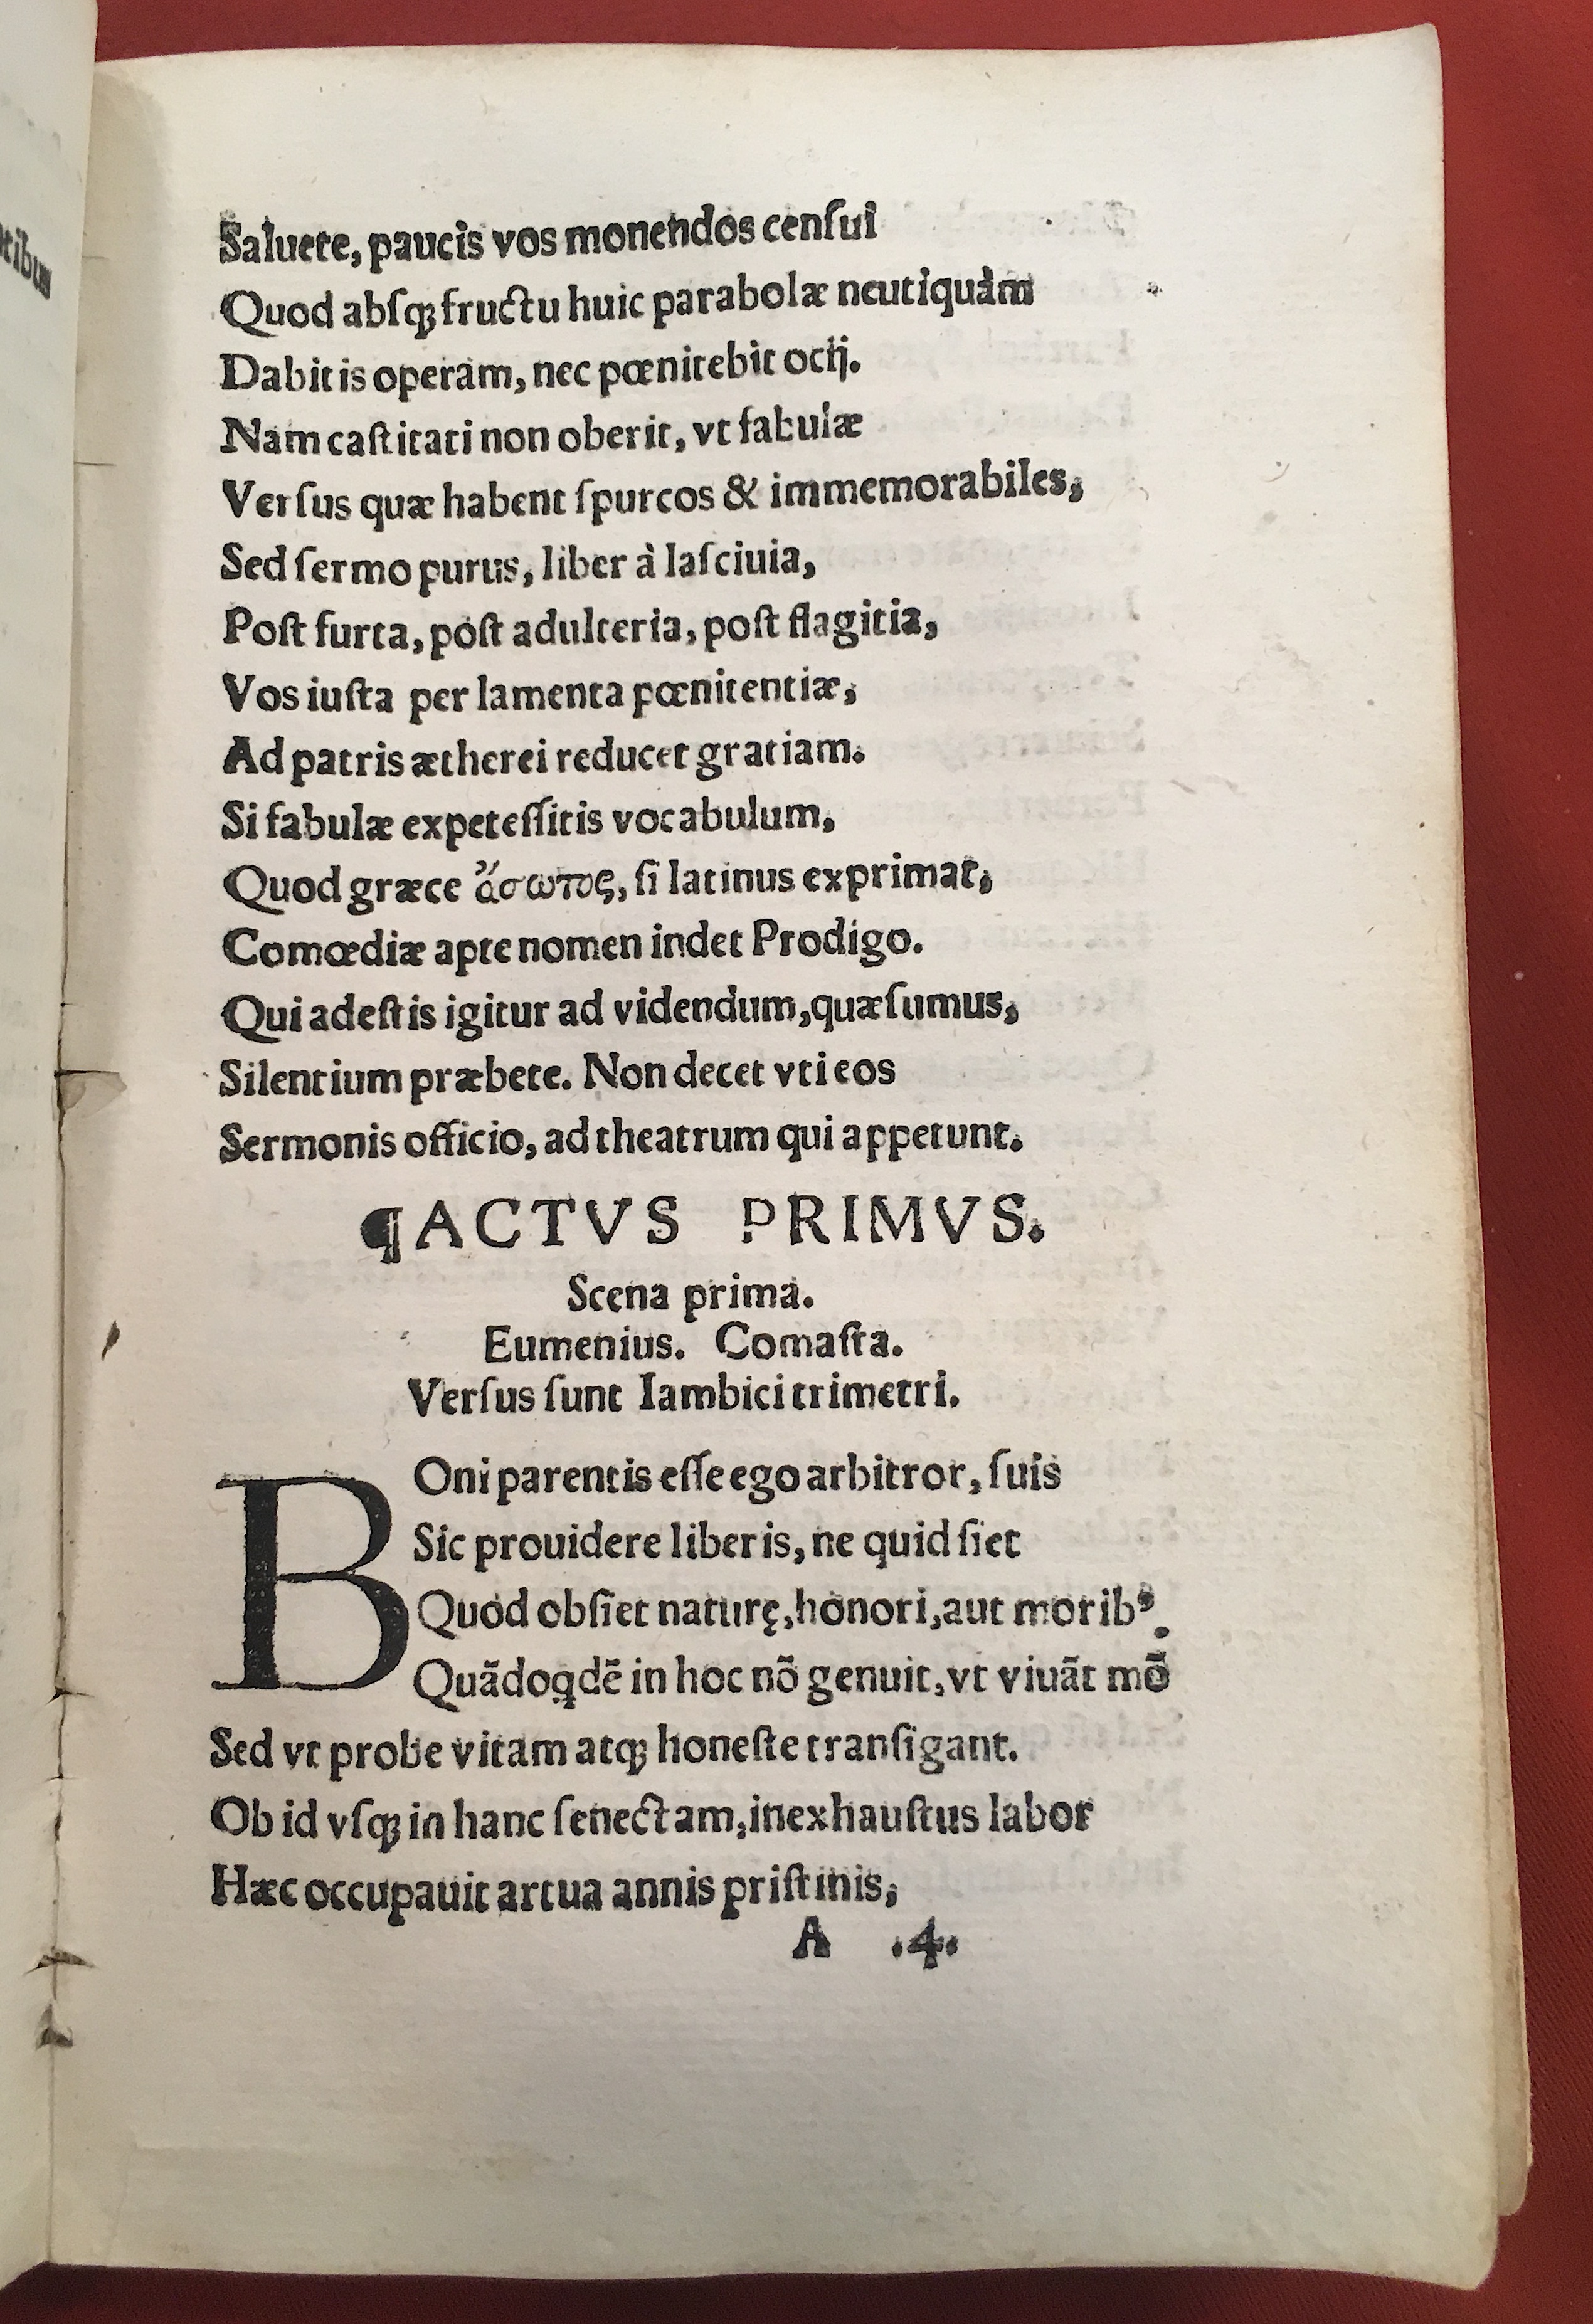 tibus
Saluete, paucis vos monendos cenſui
Quod abſqꝫ fructu huic parabolæ neutiquàm
Dabitis operam, nec pœnitebit ocij.
Nam caſtitati non oberit, vt fabulæ
Verſus quæ habent ſpurcos & immemorabiles,
Sed ſermo purus, liber à laſciuia,
Poſt furta, poſt adulteria, poſt flagitia,
Vos iuſta per lamenta pœnitentiæ,
Ad patris ætherei reducet gratiam.
Si fabulæ expeteſſitis vocabulum,
Quod græce ἄσωτος, ſi latinus exprimat,
Comœdiæ apte nomen indet Prodigo.
Qui adeſtis igitur ad videndum, quæſumus,
Silentium præbete. Non decet vti eos
Sermonis officio, ad theatrum qui appetunt.
¶ACTVS PRIMVS.
Scena prima.
Eumenius. Comaſta.
Verſus ſunt Iambici trimetri.
BOni parentis eſſe ego arbitror, ſuis
Sic prouidere liberis, ne quid ſiet
Quod obſiet naturę, honori, aut moribꝰ.
Quãdoqdẽ in hoc nõ genuit, vt viuãt mõ
Sed vt probe vitam atqꝫ honeſte tranſigant.
Ob id vſqꝫ in hanc ſenectam, inexhauſtus labor
Hæc occupauit artua annis priſtinis,
A .4.